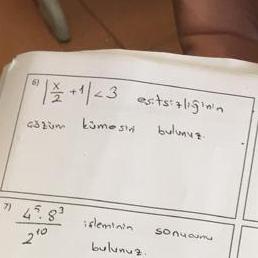 6) |x/2 + 1| < 3 eşitsizliğinin
çözüm kümesini bulunuz.
7) 4⁵·8³ / 2¹⁰ işleminin sonucunu
bulunuz.